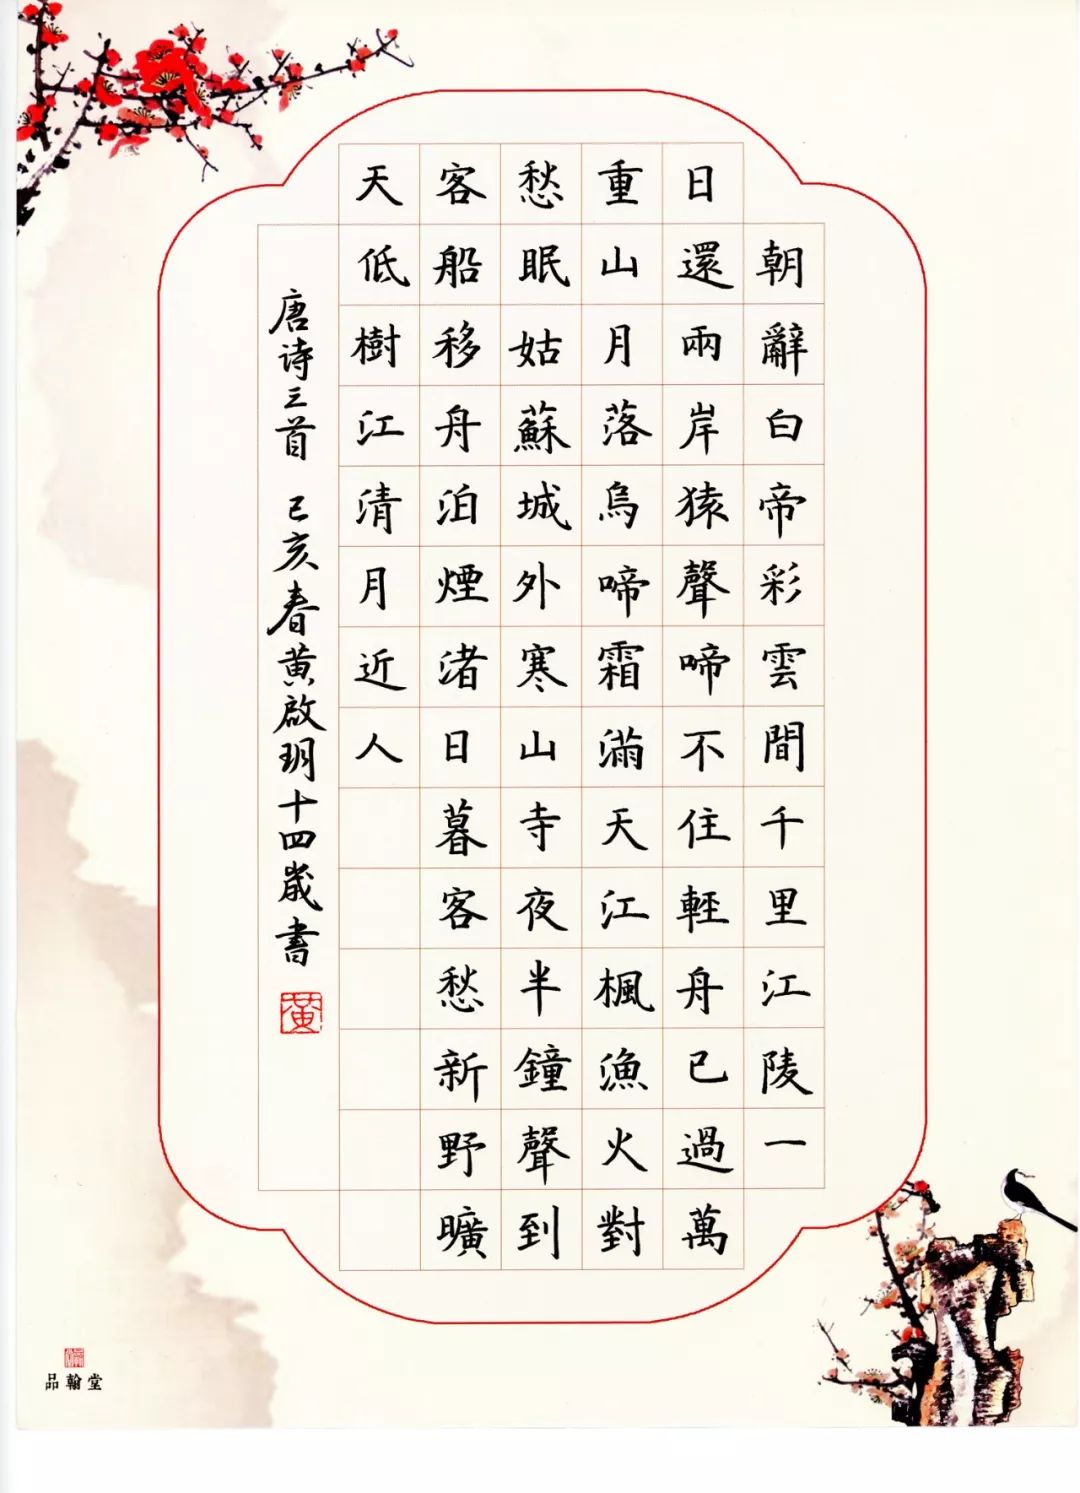 朝辭白帝彩雲間千里江陵一
日還兩岸猿聲啼不住輕舟已過萬
重山月落烏啼霜滿天江楓漁火對
愁眠姑蘇城外寒山寺夜半鐘聲到
客船移舟泊煙渚日暮客愁新野曠
天低樹江清月近人
唐诗三首 己亥春黄啟玥十四歲書
黃
品翰堂